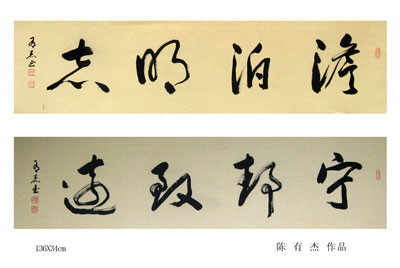 澹泊明志
有杰书
宁静致遠
有杰书
136X34cm
陈有杰 作品